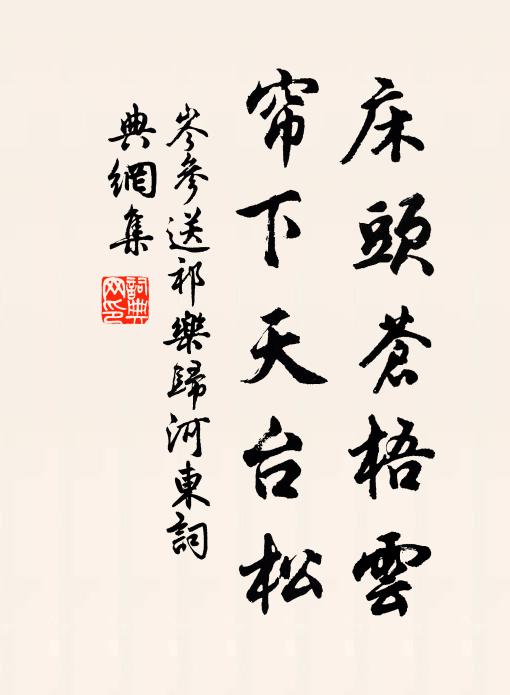 床頭蒼梧雲
帘下天台松
岑參送祁樂歸河東詞
典網集
詞典
网印